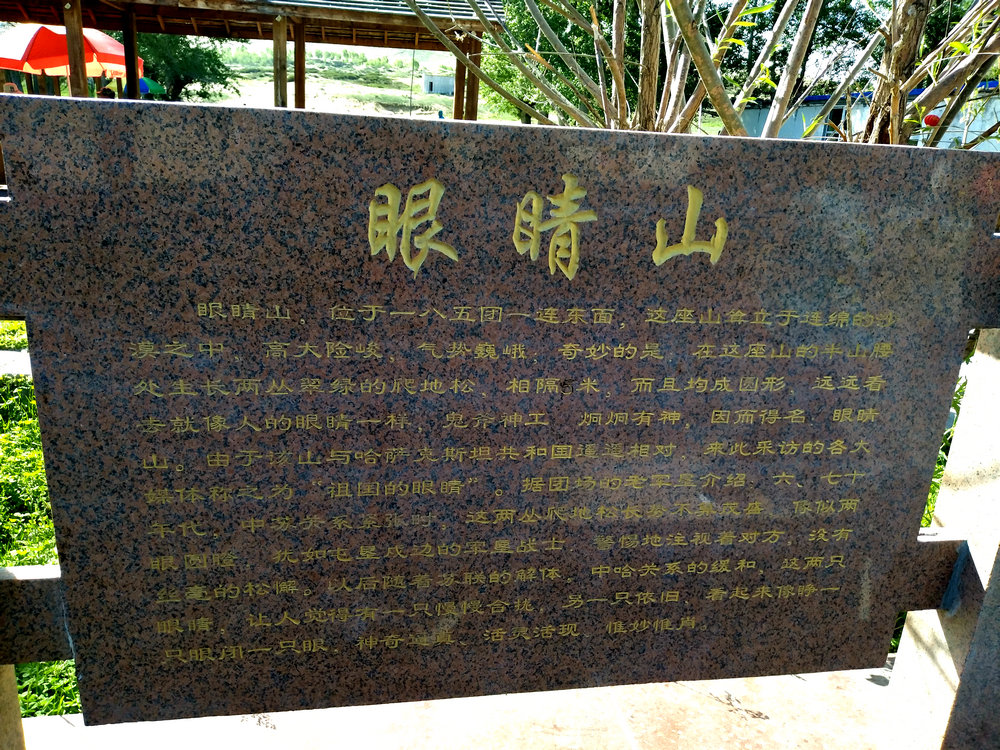 眼睛山
眼睛山，位于一八五团一连东面，这座山耸立于连绵的沙
漠之中，高大险峻，气势巍峨。奇妙的是，在这座山的半山腰
处生长两丛翠绿的爬地松，相隔百米，而且均成圆形，远远看
去就像人的眼睛一样，鬼斧神工，炯炯有神，因而得名 眼睛
山。由于该山与哈萨克斯坦共和国遥遥相对，来此采访的各大
媒体称之为“祖国的眼睛”。据团场的老军垦介绍，六、七十
年代，中苏关系紧张时，这两丛爬地松长势不乘茂盛，像似两
眼圆睁，犹如屯垦戍边的军垦战士，警惕地注视着对方，没有
丝毫的松懈。以后随着苏联的解体，中哈关系的缓和，这两只
眼睛，让人觉得有一只慢慢合拢，另一只依旧，看起来像睁一
只眼闭一只眼，神奇逼真，活灵活现，惟妙惟肖。